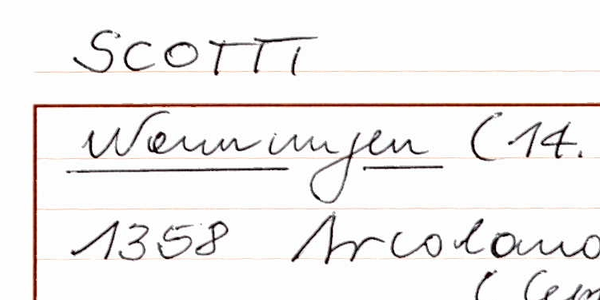 SCOTTI
Wanningen (14.
1358 Arcolano
(